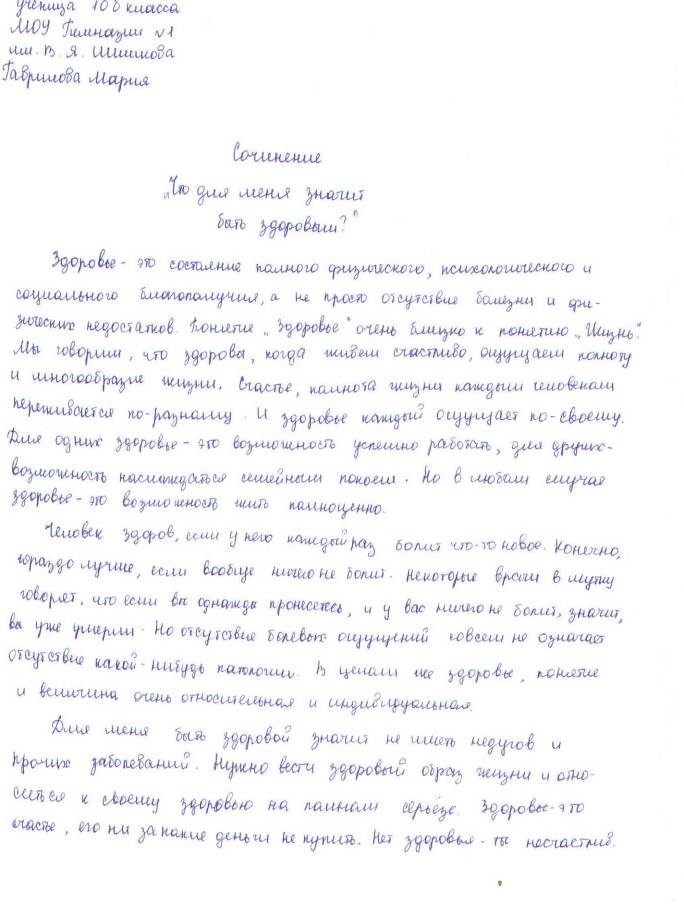 ученица 10б класса
МОУ Гимназии №1
им. В. Я. Шишкова
Гаврилова Мария
Сочинение
„Что для меня значит
быть здоровым?"
Здоровье - это состояние полного физического, психологического и
социального благополучия, а не просто отсутствие болезни и фи-
зических недостатков. Понятие „Здоровье" очень близко к понятию „Жизнь".
Мы говорим, что здоровы, когда живем счастливо, ощущаем полноту
и многообразие жизни. Счастье, полнота жизни каждым человеком
переживается по-разному. И здоровье каждый ощущает по-своему.
Для одних здоровье - это возможность успешно работать, для других-
возможность наслаждаться семейным покоем. Но в любом случае
здоровье - это возможность жить полноценно.
Человек здоров, если у него каждый раз болит что-то новое. Конечно,
гораздо лучше, если вообще ничего не болит. Некоторые врачи в шутку
говорят, что если вы однажды проснетесь, и у вас ничего не болит, значит,
вы уже умерли. Но отсутствие болевых ощущений совсем не означает
отсутствие какой-нибудь патологии. В целом же здоровье, понятие
и величина очень относительная и индивидуальная.
Для меня быть здоровой значит не иметь недугов и
прочих заболеваний. Нужно вести здоровый образ жизни и отно-
ситься к своему здоровью на полном серьёзе. Здоровье-это
счастье, его ни за какие деньги не купить. Нет здоровья - ты несчастлив.